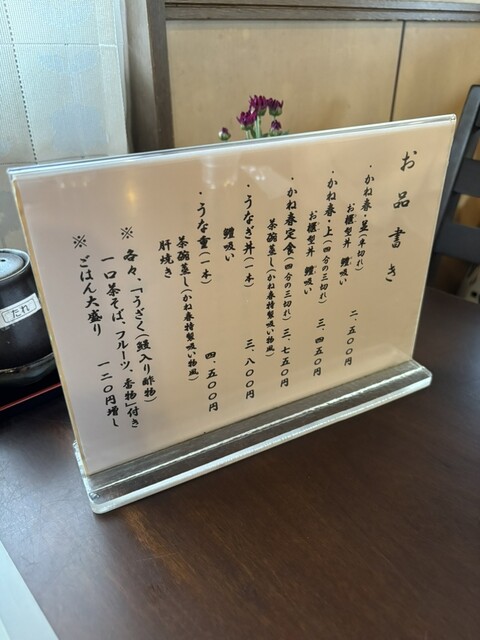 お品書き
・かね春・並(半切れ) 二、五〇〇円
お櫃型丼 鰻吸い
・かね春・上(四分の三切れ) 三、四五〇円
お櫃型丼 鰻吸い
・かね春定食(四分の三切れ) 三、七五〇円
茶碗蒸し(かね春特製吸い物風)
・うなぎ丼(一本) 三、八〇〇円
鰻吸い
・うな重(一本) 四、五〇〇円
茶碗蒸し(かね春特製吸い物風)
肝焼き
※ 各々、「うざく(鰻入り酢物)
一口茶そば、フルーツ、香物」付き
※ ごはん大盛り 一二〇円増し
たれ